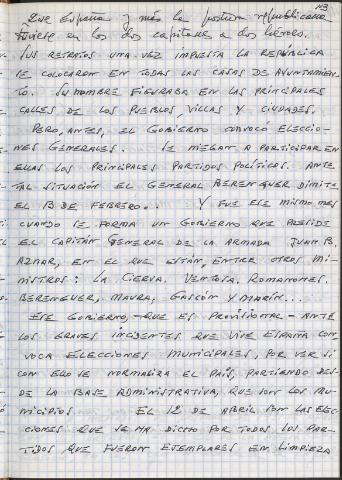 143
Que España y más la postura republicana
tuviese en los dos capitanes a dos héroes.
Sus retratos una vez impuesta la República
se colocaron en todas las casas de Ayuntamien-
to. Su nombre figuraba en las principales
calles de los pueblos, villas y ciudades.
Pero, antes, el Gobierno convocó eleccio-
nes generales. Se niegan a participar en
ellas los principales partidos políticos. Ante
tal situación el general Berenguer dimite
el 13 de febrero. Y fue ese mismo mes
cuando se forma un Gobierno que preside
el Capitán General de la Armada Juan B.
Aznar, en el que están, entre otros mi-
nistros: La Cierva. Ventosa, Romanones.
Berenguer, Maura, Gascón y Marín...
Ese Gobierno, -que es provisional- ante
los graves incidentes que vive España con-
voca elecciones municipales, por ver si
con ello se normaliza el país, partiendo des-
de la base administrativa, que son los mu-
nicipios. El 12 de abril son las elec-
ciones que se ha dicho por todos los par-
tidos que fueron ejemplares en limpieza